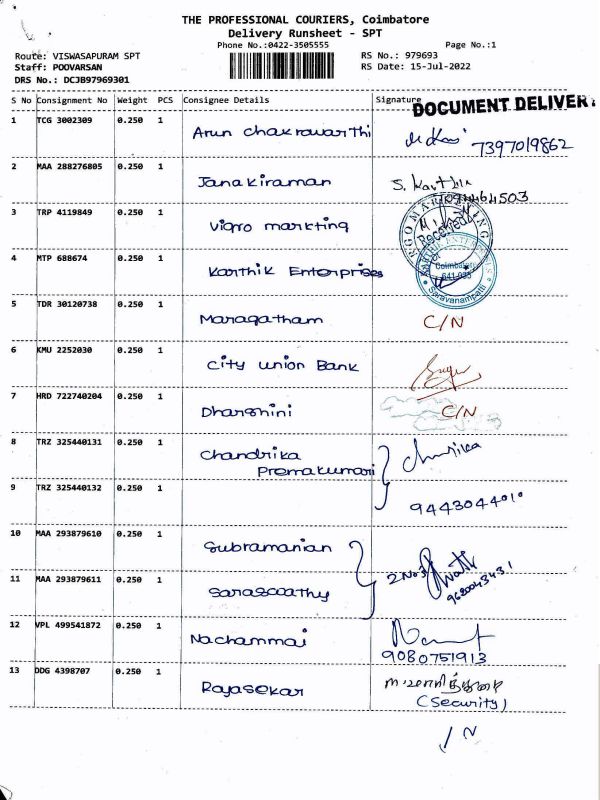 THE PROFESSIONAL COURIERS, Coimbatore
Delivery Runsheet - SPT
Phone No.:0422-3505555 Page No.:1
Route: VISWASAPURAM SPT RS No.: 979693
Staff: POOVARSAN RS Date: 15-Jul-2022
DRS No.: DCJB97969301
S No Consignment No Weight PCS Consignee Details Signature
DOCUMENT DELIVER
1 TCG 3002309 0.250 1 Arun chakravarthi 7397019862
2 MAA 288276805 0.250 1 Janakiraman S. Karthik
3 TRP 4119849 0.250 1 Vigro markting Received
4 MTP 688674 0.250 1 Karthik Enterprises
KARTHIK ENTERPRISES
Coimbatore
641 035
Saravanampatti
5 TDR 30120738 0.250 1 Maragatham C/N
6 KMU 2252030 0.250 1 City union Bank
7 HRD 722740204 0.250 1 Dharshini C/N
8 TRZ 325440131 0.250 1 Chandrika
Premakumari
9 TRZ 325440132 0.250 1 9443044010
10 MAA 293879610 0.250 1 Subramanian
2 Nos
11 MAA 293879611 0.250 1 Saraswathy
12 VPL 499541872 0.250 1 Nachammai
9080751913
13 DDG 4398707 0.250 1 Rajasekar
(Security)
/ N